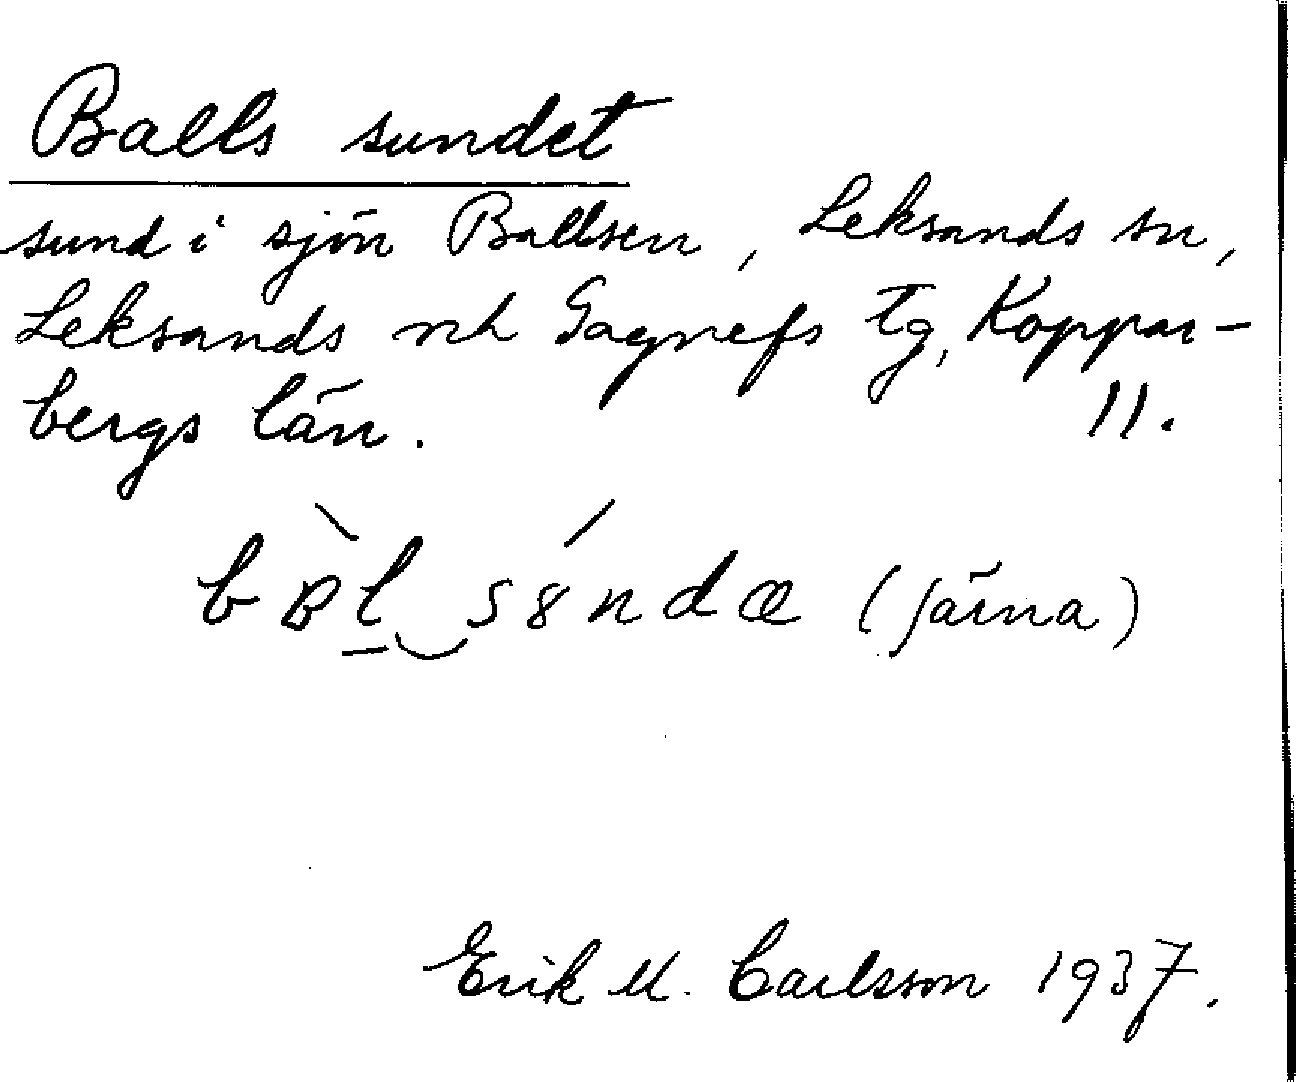 Balls sundet
sund i sjön Ballsen, Leksands sn,
Leksands och Gagnefs tg, Koppar-
bergs län. 11.
sɞnd (Järna)
Erik M. Carlsson 1937.